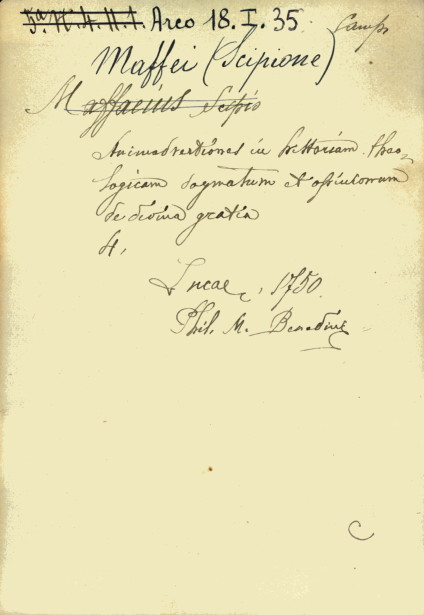 5ª N. 4. H. 1. Arco 18. I. 35 Camp
Maffei (Scipione)
Maffaeius Scipio
Animadvertiones in historiam theo-
logicam dogmatum et opinionum
de divina gratia
4,
Lucae, 1750.
Phil. M. Benedini
C